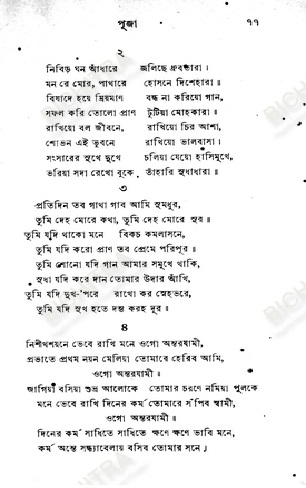 পূজা ১৭
২
নিবিড় ঘন আঁধারে জ্বলিছে ধ্রুবতারা।
মন রে মোর, পাথারে হোসনে দিশেহারা॥
বিষাদে হয়ে ম্রিয়মাণ বন্ধ না করিয়ো গান,
সফল করি তোলো প্রাণ টুটিয়া মোহকারা॥
রাখিয়ো বল জীবনে, রাখিয়ো চির আশা,
শোভন এই ভুবনে রাখিয়ো ভালবাসা।
সংসারের সুখে দুখে চলিয়া যেয়ো হাসিমুখে,
ভরিয়া সদা রেখো বুকে তাঁহারি সুধাধারা॥
৩
প্রতিদিন তব গাথা গাব আমি সুমধুর,
তুমি দেহ মোরে কথা, তুমি দেহ মোরে সুর॥
তুমি যদি থাকো মনে বিকচ কমলাসনে,
তুমি যদি করো প্রাণ তব প্রেমে পরিপূর॥
তুমি শোনো যদি গান আমার সমুখে থাকি,
সুধা যদি করে দান তোমার উদার আঁখি,
তুমি যদি দুখ-'পরে রাখো কর স্নেহভরে,
তুমি যদি সুখ হতে দম্ভ করহ দূর॥
৪
নিশীথশয়নে ভেবে রাখি মনে ওগো অন্তরযামী,
প্রভাতে প্রথম নয়ন মেলিয়া তোমারে হেরিব আমি,
ওগো অন্তরযামী॥
জাগিয়া বসিয়া শুভ্র আলোকে তোমার চরণে নমিয়া পুলকে
মনে ভেবে রাখি দিনের কর্ম তোমারে সঁপিব স্বামী,
ওগো অন্তরযামী॥
দিনের কর্ম সাধিতে সাধিতে ক্ষণে ক্ষণে ভাবি মনে,
কর্ম অন্তে সন্ধ্যাবেলায় বসিব তোমার সনে।